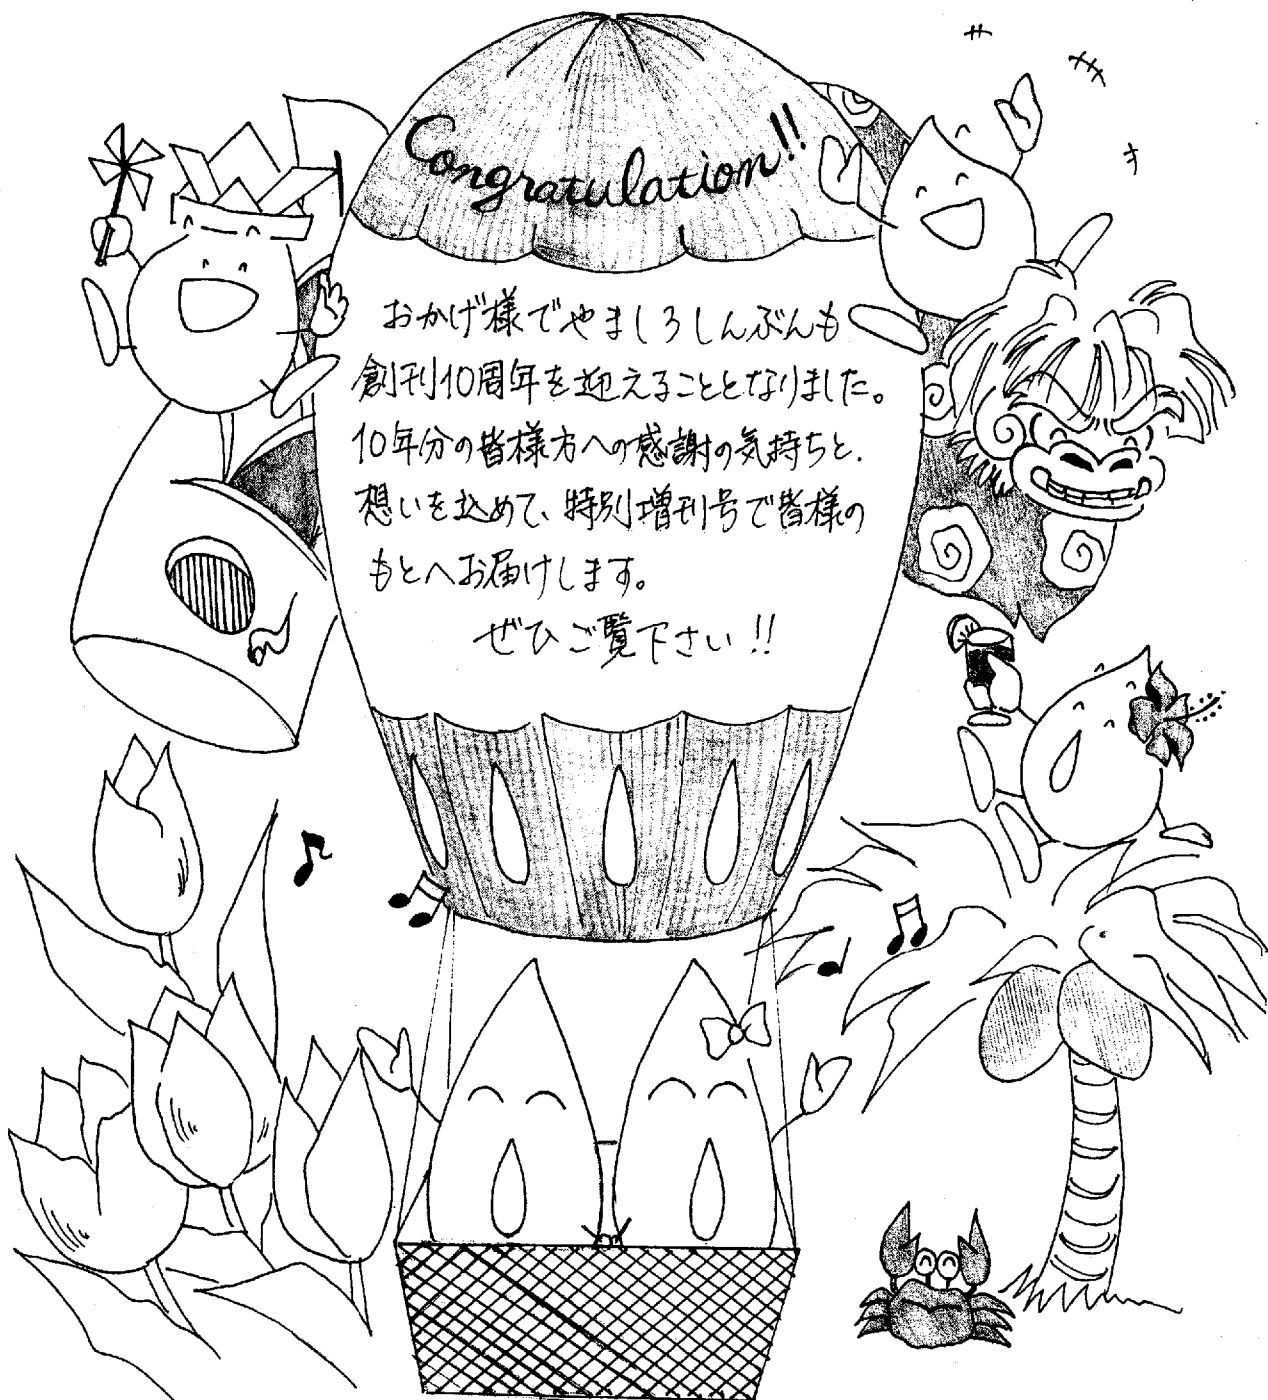 Congratulation!!
キ
キャ
キ
おかげ様でやましろしんぶんも
創刊10周年を迎えることとなりました。
10年分の皆様方への感謝の気持ちと、
想いを込めて、特別増刊号で皆様の
もとへお届けします。
ぜひご覧下さい!!